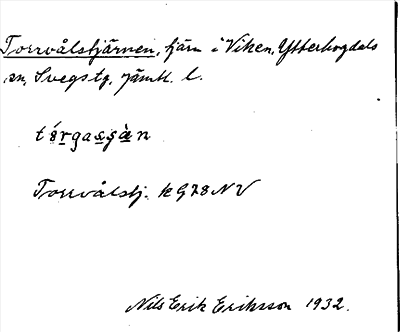 Torrvålstjärnen, tjärn i Viken, Ytterhogdals
sn, Svegs tg, Jämtl. l.
Torrvålstj. k G78 NV
Nils Erik Eriksson 1932.